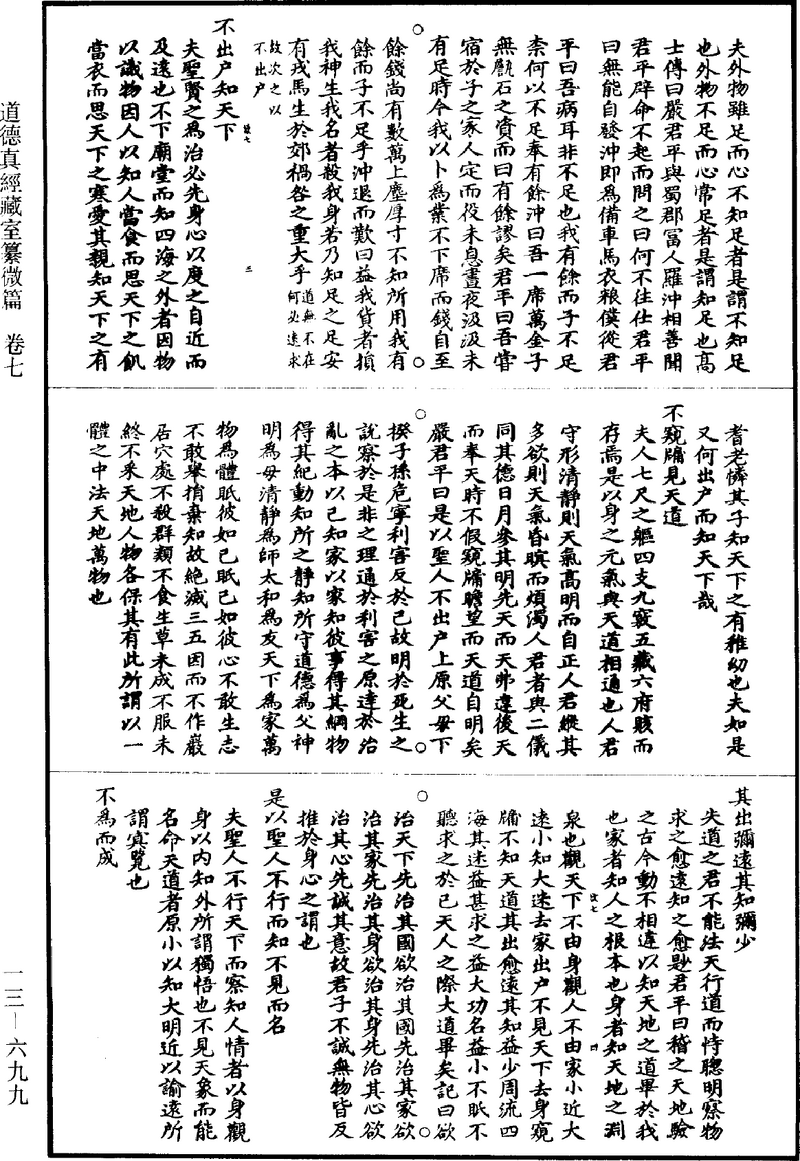 道德真經藏室纂微篇　卷七
夫外物雖足而心不知足者是謂不知足
也外物不足而心常足者是謂知足也高
士傳曰嚴君平與蜀郡富人羅沖相善聞
君平辟命不起而問之曰何不往仕君平
曰無能自發沖即為備車馬衣粮僕從君
平曰吾病耳非不足也我有餘而子不足
柰何以不足奉有餘沖曰吾一席萬金子
無甔石之資而曰有餘謬矣君平曰吾嘗
宿於子之家人定而役未息晝夜汲汲未
有足時今我以卜為業不下席而錢自至
餘錢尚有數萬上塵厚寸不知所用我有
餘而子不足乎沖退而歎曰益我貨者損
我神生我名者殺我身若乃知足之足安
有戎馬生於郊禍咎之重大乎道無不在何必遠求
故次之以不出户
不出户知天下
夫聖賢之為治必先身心以度之自近而
及遠也不下廟堂而知四海之外者因物
以識物因人以知人當食而思天下之飢
當衣而思天下之寒愛其親知天下之有
耆老憐其子知天下之有稚幼也夫知是
又何出户而知天下哉
不窺牖見天道
夫人七尺之軀四支九竅五藏六府賅而
存焉是以身之元氣與天道相通也人君
守形清靜則天氣高明而自正人君縱其
多欲則天氣昏暝而煩濁人君者與二儀
同其德日月參其明先天而天弗違後天
而奉天時不假窺牖瞻望而天道自明矣
嚴君平曰是以聖人不出户上原父母下
揆子孫危寧利害反於己故明於死生之
說察於是非之理通於利害之原達於治
亂之本以己知家以家知彼事得其綱物
得其紀動知所之靜知所守道德為父神
明為母清靜為師太和為友天下為家萬
物為體眡彼如己眡己如彼心不敢生志
不敢舉捐棄知故絕滅三五因而不作巖
居穴處不殺群類不食生草未成不服未
終不采天地人物各保其有此所謂以一
體之中法天地萬物也
其出彌遠其知彌少
失道之君不能法天行道而恃聰明察物
求之愈遠知之愈尠君平曰稽之天地驗
之古今動不相違以知天地之道畢於我
也家者知人之根本也身者知天地之淵
泉也觀天下不由身觀人不由家小近大
遠小知大迷去家出户不見天下去身窺
牖不知天道其出愈遠其知益少周流四
海其迷益甚求之益大功名益小不眡不
聽求之於己天人之際大道畢矣記曰欲
治天下先治其國欲治其國先治其家欲
治其家先治其身欲治其身先治其心欲
治其心先誠其意故君子不誠無物皆反
推於身心之謂也
是以聖人不行而知不見而名
夫聖人不行天下而察知人情者以身觀
身以内知外所謂獨悟也不見天象而能
名命天道者原小以知大明近以諭遠所
謂冥覽也
不為而成
一三－六九九